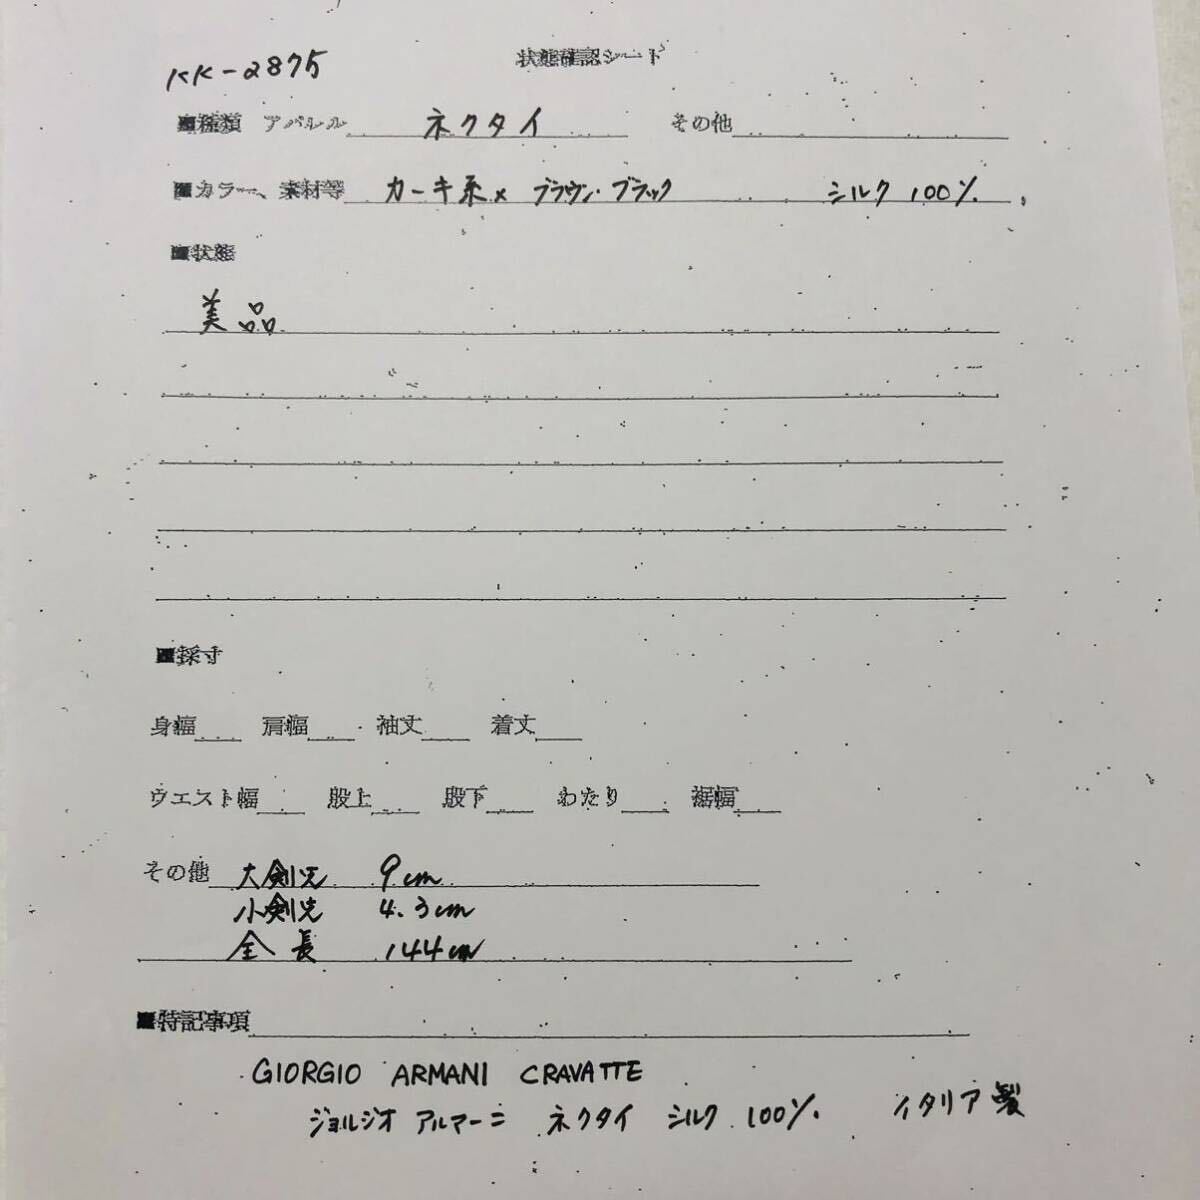 状態確認シート
KK-2875
■種類 アパレル ネクタイ その他
■カラー、素材等 カーキ系× ブラウン・ブラック シルク 100%
■状態
美品
■採寸
身幅 肩幅 袖丈 着丈
ウエスト幅 股上 股下 わたり 裾幅
その他 大剣先 9cm
小剣先 4.3cm
全長 144cm
■特記事項
GIORGIO ARMANI CRAVATTE
ジョルジオ アルマーニ ネクタイ シルク 100% イタリア製